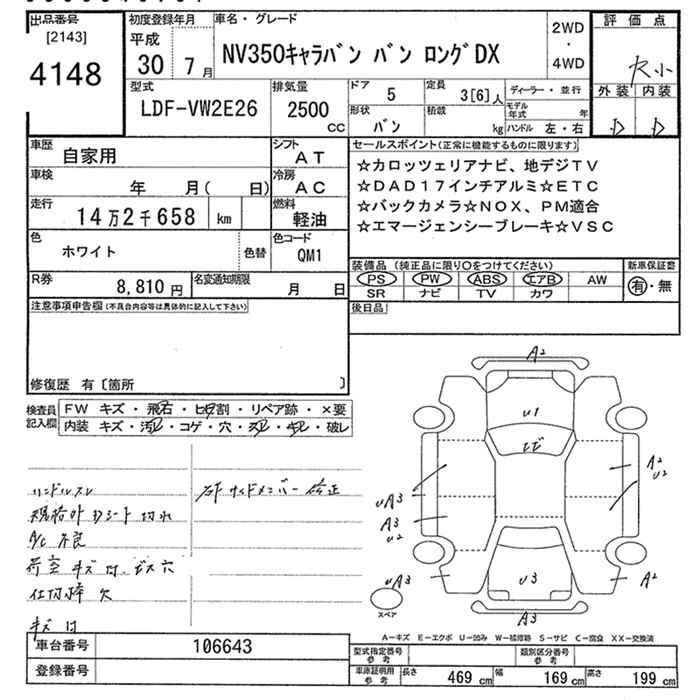 出品番号
[2143]
4148
初度登録年月
平成
30 7月
車名・グレード
NV350キャラバン バン ロングDX
2WD
・
4WD
評価点
外装 内装
D D
型式
LDF-VW2E26
排気量
2500
CC
ドア
5
定員
3[6]人
ディーラー・並行
形状
バン
積載
kg
モデル年式 年
ハンドル 左・右
車歴
自家用
シフト
AT
車検
年 月( 日)
冷房
AC
走行
14万2千658 km
燃料
軽油
色
ホワイト
色替
色コード
QM1
R券
8,810円
名変通知期限
月 日
セールスポイント(正常に機能するものに限ります)
☆カロッツェリアナビ、地デジTV
☆DAD17インチアルミ☆ETC
☆バックカメラ☆NOX、PM適合
☆エマージェンシーブレーキ☆VSC
装備品 (純正品に限り○をつけてください)
新車保証書
PS PW ABS エアB AW
SR ナビ TV カワ
有・無
注意事項申告欄(不具合内容等は具体的に記入して下さい)
後日品
修復歴 有〔箇所 〕
検査員記入欄
FW キズ・飛石・ヒビ割・リペア跡・×要
内装 キズ・汚レ・コゲ・穴・スレ・キレ・破レ
ハンドルスレ
規格外 Dシート 切れ
A/C 不良
荷室 キズ 凹 ビス穴
キズ 凹
サイドメンバー 修正
A2
U1
ヒビ
A2
U2
UA3
A3
U2
UA3
U3
A2
A3
スペア
A－キズ E－エクボ U－凹み W－補修跡 S－サビ C－腐食 XX－交換済
車台番号
106643
登録番号
型式指定番号
参考
類別区分番号
参考
車庫証明用
参考
長さ 469 cm 幅 169 cm 高さ 199 cm